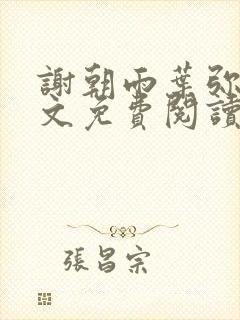 謝朝雨葉弥
文免費閱讀
張昌宗